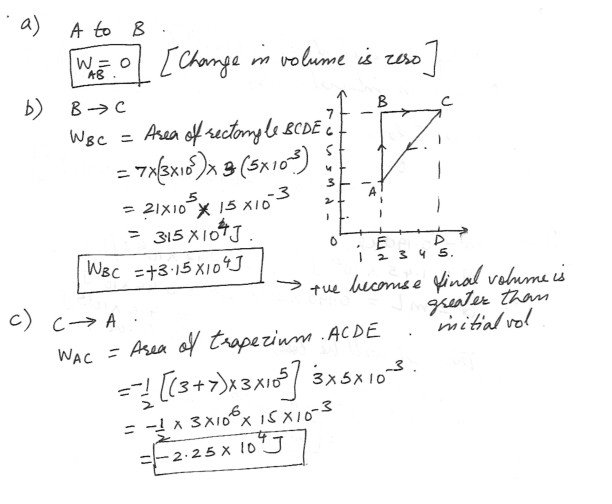 a) A to B .
W_AB = 0 [Change in volume is zero]
b) B → C
W_BC = Area of rectangle BCDE
= 7×(3×10⁵)× 3 (5×10⁻³)
= 21×10⁵ × 15 ×10⁻³
= 3.15 ×10⁴ J .
W_BC = +3.15×10⁴J
→ +ve because final volume is
greater than
initial vol
B C
7
6
5
4
3 A
2
1
0 E D
1 2 3 4 5.
c) C → A .
W_AC = Area of trapezium ACDE .
= -1/2 [(3+7)×3×10⁵] 3×5×10⁻³ .
= -1/2 × 3×10⁶ × 15×10⁻³
= -2.25 × 10⁴ J